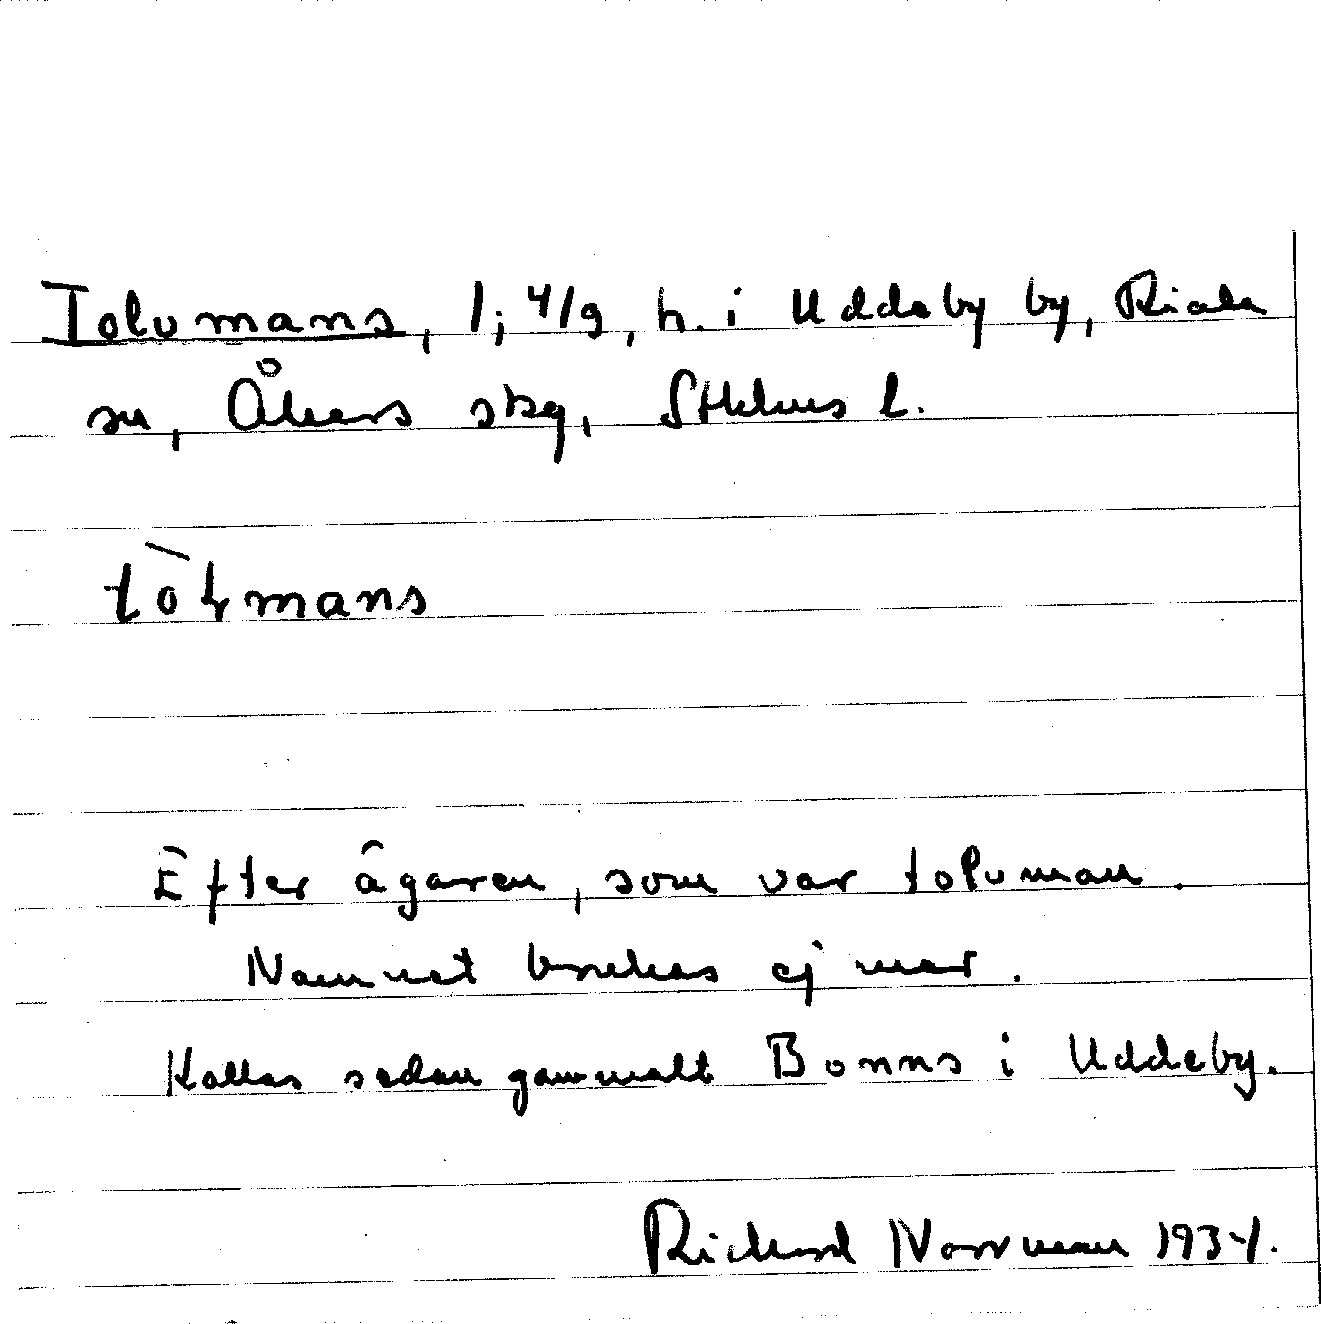 Tolvmans, 1; 4/9, h. i Uddeby by, Riala
sn, Åkers skg, Sthlms l.
tòɫmans
Efter ägaren, som var tolvman.
Namnet brukas ej mer.
Kallas sedan gammalt Bonns i Uddeby.
Richard Norrman 1934.